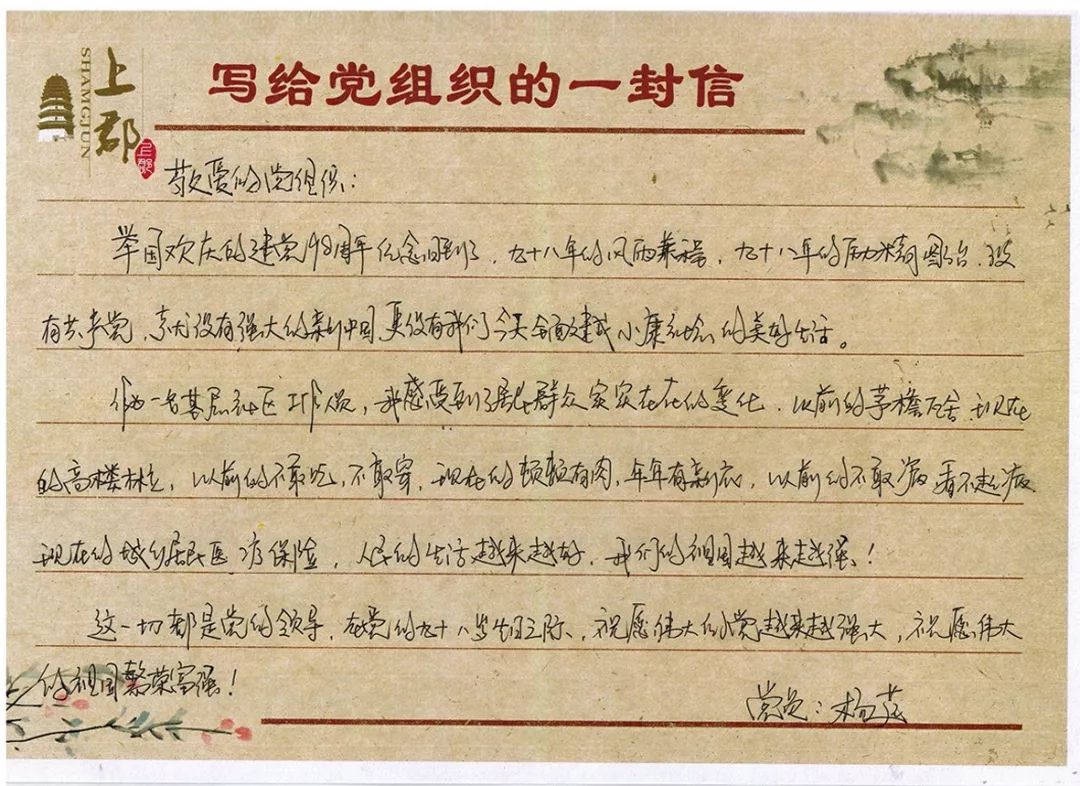 上郡
SHANGJUN
上郡
写给党组织的一封信
敬爱的党组织:
举国欢庆的建党98周年纪念日到了,九十八年的风雨兼程,九十八年的励精图治,没
有共产党,就没有强大的新中国更没有我们今天全面建成小康社会的美好生活。
作为一名基层社区工作人员,我感受到了居民群众实实在在的变化,以前的茅檐瓦舍,现在
的高楼林立,以前的不敢吃,不敢穿,现在的顿顿有肉,年年有新衣,以前的不敢病,看不起病
现在的城乡居民医疗保险,人民的生活越来越好,我们的祖国越来越强!
这一切都是党的领导,在党的九十八岁生日之际,祝愿伟大的党越来越强大,祝愿伟大
的祖国繁荣富强!
党员:杨